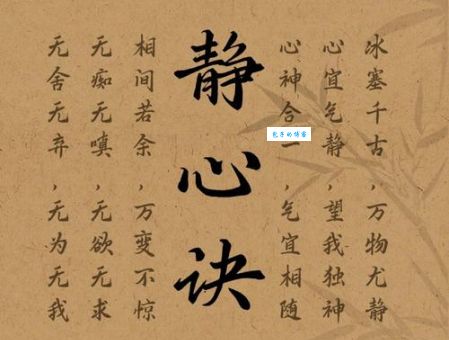 冰塞千古，万物尤静
心宜气静，望我独神
心神合一，气宜相随
静心诀
相间若余，万变不惊
无痴无嗔，无欲无求
无舍无弃，无为无我